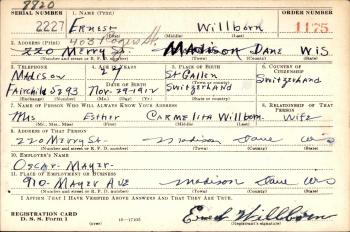 SERIAL NUMBER 1. NAME (Print) ORDER NUMBER
2227 Ernest Willborn 1175
(First) (Middle) (Last)
2. ADDRESS (Print)
220 Merry St. Madison Dane Wis
(Number and street or R. F. D. number) (Town) (County) (State)
3. TELEPHONE 4. AGE IN YEARS 5. PLACE OF BIRTH 6. COUNTRY OF CITIZENSHIP
Madison 27 St Gallen Switzerland
DATE OF BIRTH (Town or county)
Fairchild 5293 Nov-29-1912 Switzerland
(Exchange) (Number) (Mo.) (Day) (Yr.) (State or country)
7. NAME OF PERSON WHO WILL ALWAYS KNOW YOUR ADDRESS 8. RELATIONSHIP OF THAT PERSON
Mrs Esther Carmelita Willborn. Wife
(Mr., Mrs., Miss) (First) (Middle) (Last)
9. ADDRESS OF THAT PERSON
220 Merry St- Madison Dane Wis
(Number and street or R. F. D. number) (Town) (County) (State)
10. EMPLOYER'S NAME
Oscar-Mayer-
11. PLACE OF EMPLOYMENT OR BUSINESS
910-Mayer Ave Madison Dane Wis
(Number and street or R. F. D. number) (Town) (County) (State)
I AFFIRM THAT I HAVE VERIFIED ABOVE ANSWERS AND THAT THEY ARE TRUE.
REGISTRATION CARD
D. S. S. Form 1 16-17105 Ernest Willborn
(Registrant's signature)